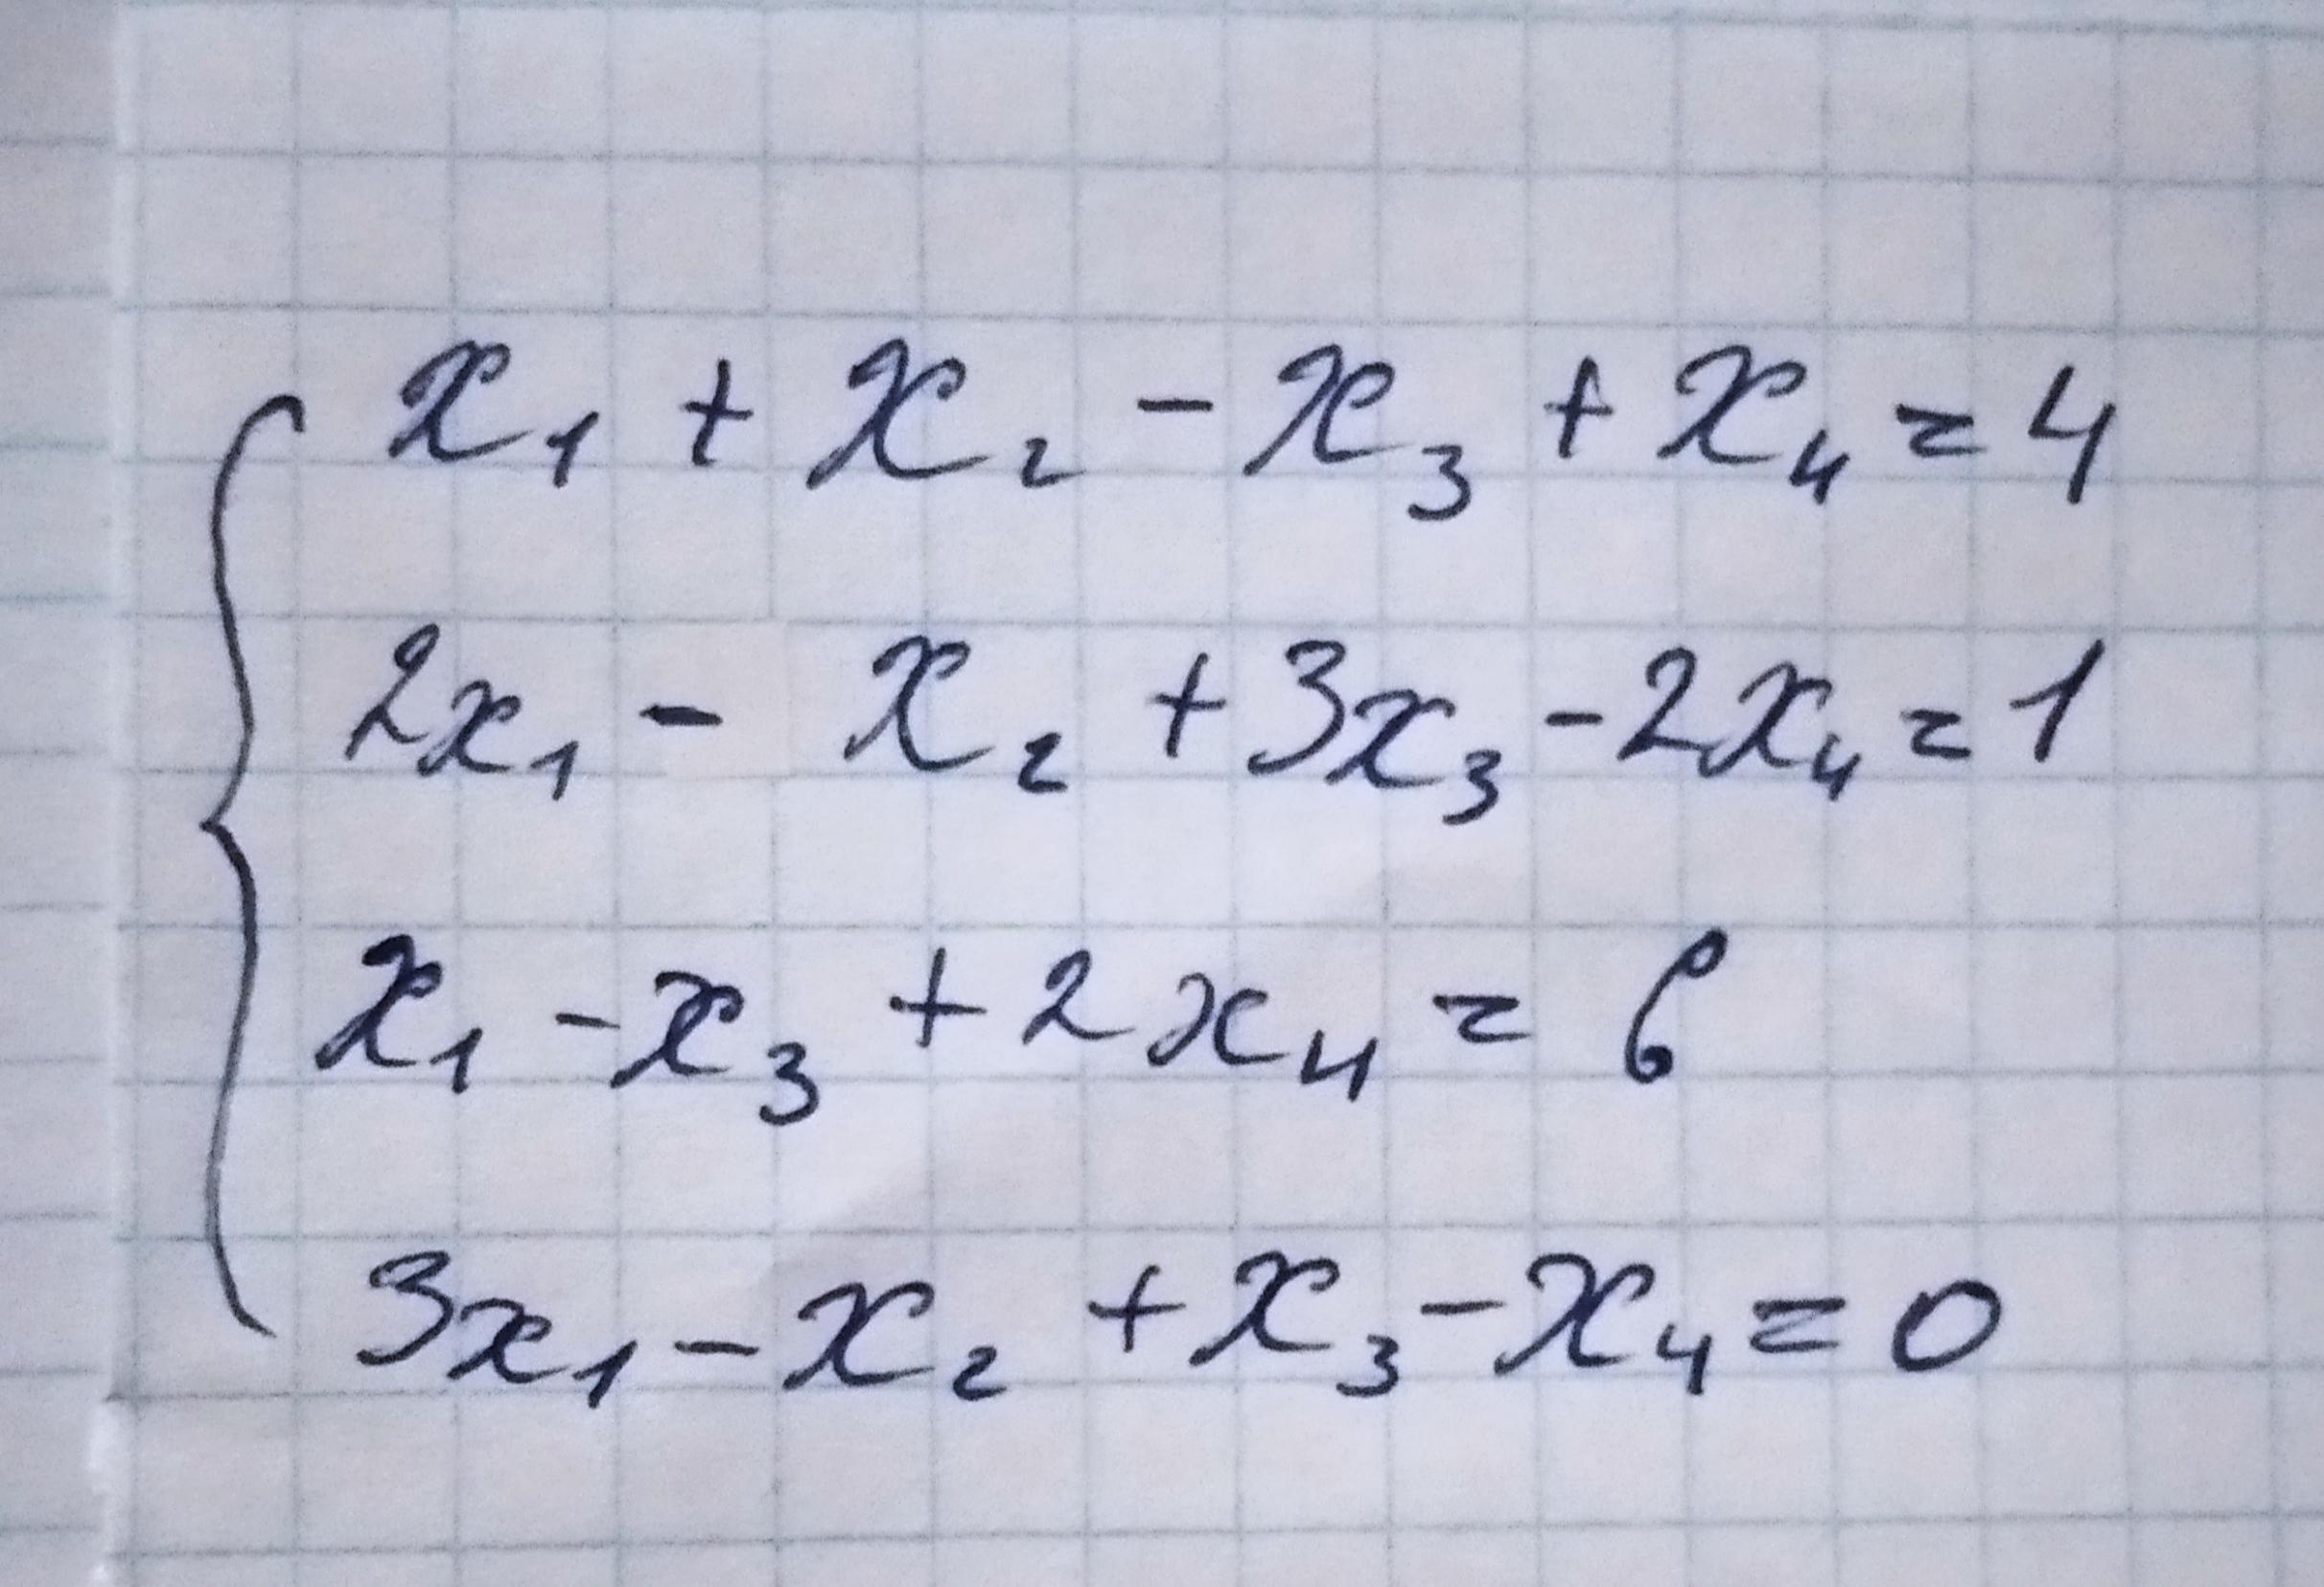 x₁ + x₂ - x₃ + x₄ = 4
2x₁ - x₂ + 3x₃ - 2x₄ = 1
x₁ - x₃ + 2x₄ = 6
3x₁ - x₂ + x₃ - x₄ = 0